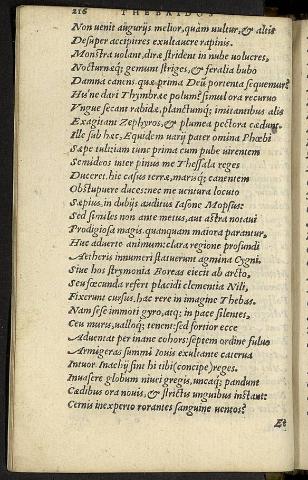 216 THEBAIDOS
Non uenit augurijs melior, quàm uultur, & altis
Desuper accipitres exultauere rapinis.
Monstra uolant, diræ strident in nube uolucres,
Nocturnæq; gemunt striges, & feralia bubo
Damna canens. quæ prima Deũ portenta sequemur?
His ne dari Thymbræe polum? simul ora recuruo
Vngue secant rabidæ, planctumq; imitantibus alis
Exagitant Zephyros, & plumea pectora cædunt.
Ille sub hæc, Equidem uarij pater omina Phœbi
Sæpe tuli: iam tunc prima cum pube uirentem
Semideos inter pinus me Thessala reges
Duceret. hic casus terræ, marisq; canentem
Obstupuere duces: nec me uentura locuto
Sæpius, in dubijs auditus Iasone Mopsus:
Sed similes non ante metus, aut astra notaui
Prodigiosa magis. quanquam maiora parantur,
Huc aduerte animum: clara regione profundi
Aetheris innumeri statuerunt agmina Cygni.
Siue hos strymonia Boreas eiecit ab arcto,
Seu fœcunda refert placidi clementia Nili,
Fixerunt cursus. hac rere in imagine Thebas.
Nam sese immoti gyro, atq; in pace silentes,
Ceu muris, ualloq; tenent: sed fortior ecce
Aduentat per inane cohors: septem ordine fuluo
Armigeras summi Iouis exultante caterua
Intuor. Inachij sint hi tibi (concipe) reges.
Inuasere globum niuei gregis, uncaq; pandunt
Cædibus ora nouis, & strictis unguibus instant:
Cernis inexperto rorantes sanguine uentos?
Et